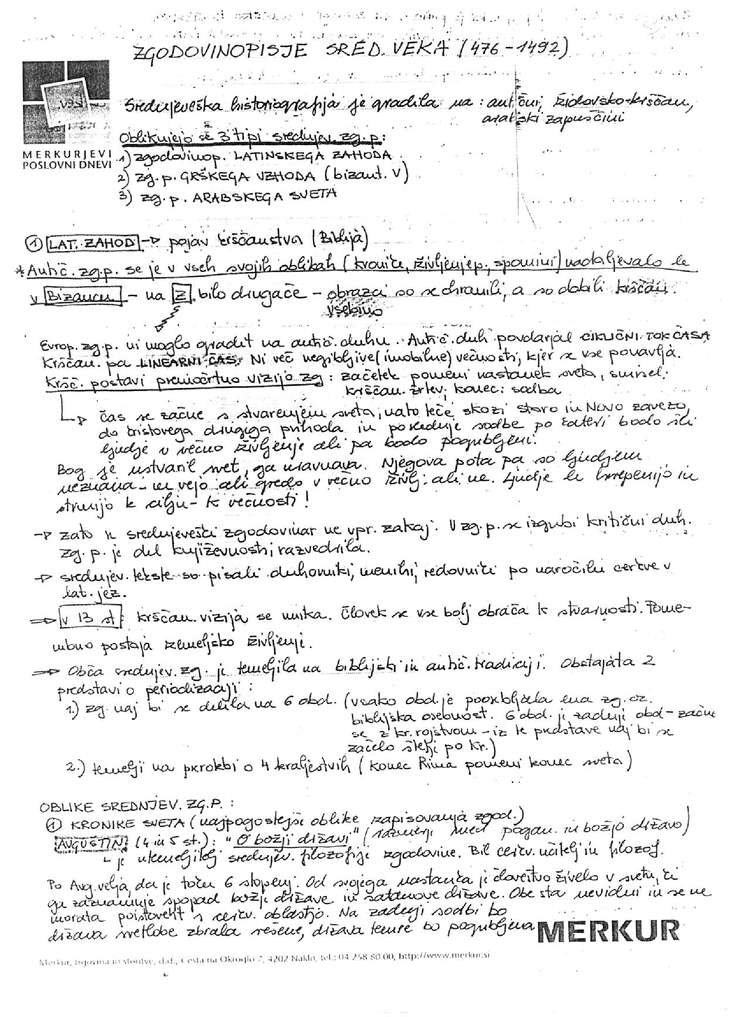 ZGODOVINOPISJE SRED. VEKA (476-1492)
Srednjeveška historiografija je gradila na: antični, židovsko-krščan,
arabski zapuščini
MERKURJEVI
POSLOVNI DNEVI
Oblikujejo se 3 tipi srednjev. zg.p.:
1) zgodovinop. LATINSKEGA ZAHODA
2) zg.p. GRŠKEGA VZHODA (bizant. V)
3) zg.p. ARABSKEGA SVETA
① LAT. ZAHOD → pojav krščanstva (Biblija)
*Antič. zg.p. se je v vseh svojih oblikah (kronike, življenjep., spomini) nadaljevalo le
v Bizancu - na Z bilo drugače - obrazci so se ohranili, a so dobili krščan.
vsebino
Evrop. zg.p. ni moglo gradit na antič. duhu. Antič. duh povdarjal CIKLIČNI TOK ČASA
Krščan. pa LINEARNI ČAS. Ni več negibljive (imobilne) večnosti, kjer se vse ponavlja.
Kršč. postavi premočrtno vizijo zg: začetek pomeni nastanek sveta, smisel:
krščan. žrtev, konec: sodba
↳ čas se začne s stvarjenjem sveta, nato teče skozi Staro in Novo zavezo,
do Kristovega drugega prihoda in poslednje sodbe po kateri bodo šli
ljudje v večno življenje ali pa bodo pogubljeni.
Bog je ustvaril svet, ga uravnava. Njegova pota pa so ljudjem
neznana - ne vejo ali gredo v večno življ. ali ne. Ljudje le hrepenijo in
strmijo k cilju - k večnosti!
→ zato se srednjeveški zgodovinar ne vpr. zakaj. V zg.p. se izgubi kritični duh.
zg.p. je del književnosti, razvedrila.
→ srednjev. tekste so pisali duhovniki, menihi, redovniki po naročilu cerkve v
lat. jez.
⇒ v 13 st: krščan. vizija se umika. Človek se vse bolj obrača k stvarnosti. Pome-
mbno postaja zemeljsko življenje.
⇒ Obča srednjev. zg. je temeljila na biblijski in antič. tradiciji. Obstajata 2
predstavi o periodizaciji:
1.) zg. naj bi se delila na 6 obd. (vsako obd. je poosebljala ena zg. oz.
biblijska osebnost. 6 obd. je zadnji obd - začne
se z kr. rojstvom - iz te predstave naj bi se
začelo štetje po Kr.)
2.) temelji na prerokbi o 4 kraljestvih (konec Rima pomeni konec sveta)
OBLIKE SREDNJEV. ZG.P.:
① KRONIKE SVETA (najpogostejše oblike zapisovanja zgod.)
AVGUŠTIN (4 in 5 st.): "O božji državi" (razmerje med pogan. in božjo državo)
↳ je utemeljitelj srednjev. filozofije zgodovine. Bil cerkv. učitelj in filozof.
Po Avg. velja, da je točno 6 stopenj. Od svojega nastanka je človeštvo živelo v svetu, ki
ga zaznamuje spopad božje države in satanove države. Obe sta nevidni in se ne
morata poistovetit s cerkv. oblastjo. Na zadnji sodbi bo
država svetlobe zbrala rešene, država teme bo pogubljena
MERKUR
Merkur, trgovina in storitve, d.d., Cesta na Okroglo 7, 4202 Naklo, tel.: 04 258 80 00, http://www.merkur.si